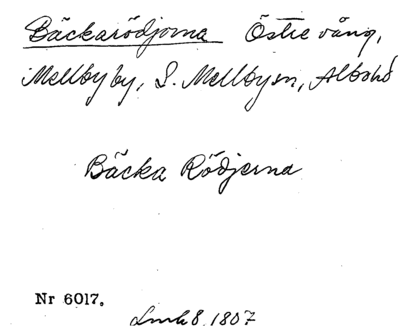 Bäckarödjorna Östre vång,
Mellby by, S. Mellby sn, Albo hd
Bäcka Rödjerna
Nr 6017.
Lmh 8. 1807